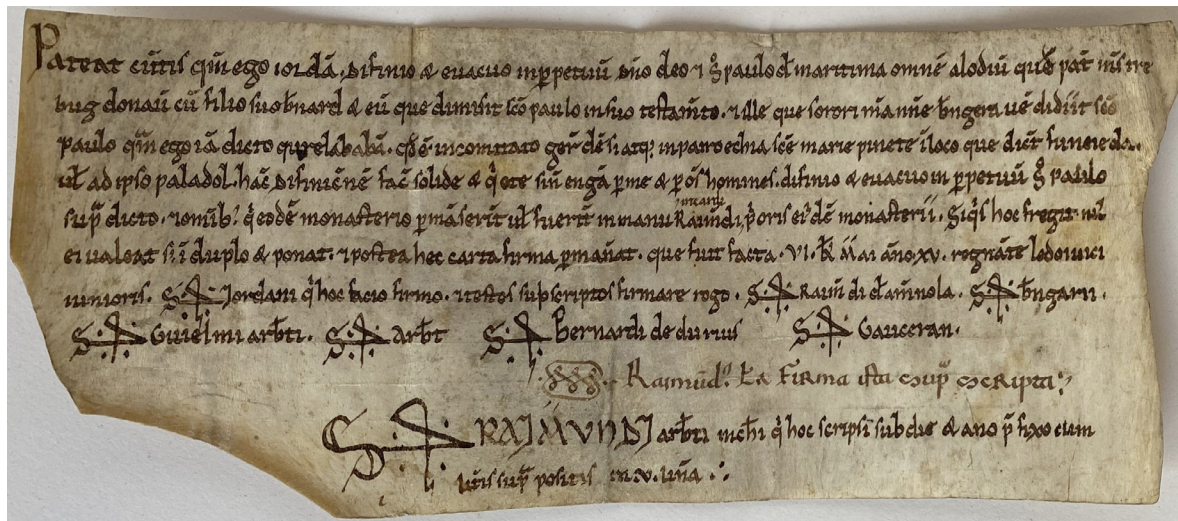 Pateat cūtis qm̄ ego iordā. difinio & euacuo inp̄petuū dn̄o deo ⁊ S̄ paulo đ maritima omnē alodiū quod pat̄ m̄s tre
bug donaū cū filio suo b̄nard & eū que dimisit scō paulo in suo testam̄to. ⁊ ille que sorori mā nn̄e b̄ngera uēdidit scō
paulo qm̄ ego iā dicto qurelababā. qđ ē in comitato ger dēsi atq; in parroechia scē marie pinete ī loco que dic̄t funeieola.
ul̄ ad ipso paladol. hac̄ difiniēnē fac̄ solide & q̄ete sin̄ engā p̄ me & p̄ om̄s hommes. difinio & euacuo in p̄petuū S̄ paulo
sup̄ dicto. ⁊ omīb; q̄ eodē monasterio p̄māserīt ul̄ fuerīt in manu Raimūdi, p̄oris ei; dē monasterii. Siq̄s hoc fregit nil
ei ualeat s; ī duplo & ponat. ⁊ postea hec carta firma p̄mān̄at. que fuit facta. VI. k̄ Mai āno xv. regnāte lodouici
iunioris. S Jordani q̄ hoc facio firmo. ⁊ testes subscriptos firmare rogo. S Raim̄di đ am̄nola. S b̄ngarii.
S Guielmi arb̄ti. S Arb̄t S Bernardi de durius S Gauceran.
Raimūd; firma ista sup̄ scripta
S RAJMVNDJ arb̄ti mchi q̄ hoc scripsī sub die & ano p̄ fixo cum
lit̄is sup̄ positis in v. līn̄a